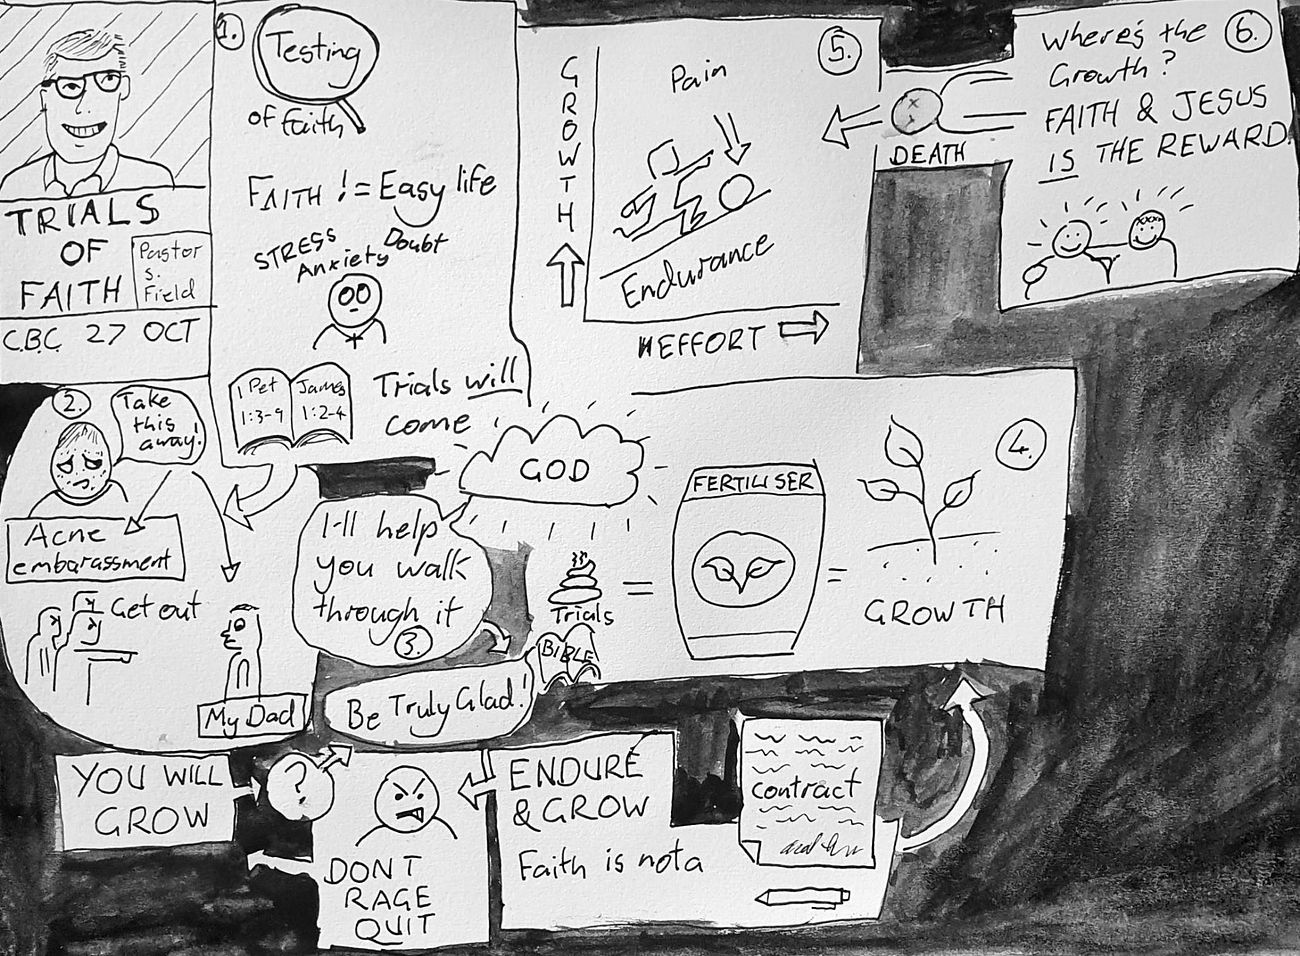 TRIALS
OF
FAITH
Pastor
S.
Field
C.B.C. 27 OCT
1.
Testing
of faith
FAITH != Easy life
Doubt
STRESS
Anxiety
1 Pet
1:3-9
James
1:2-4
Trials will
come
2.
Take
this
away!
Acne
embarassment
Get out
My Dad
GOD
I'll help
you walk
through it
3.
Be Truly Glad!
BIBLE
Trials
=
FERTILISER
=
GROWTH
4.
GROWTH
Pain
5.
Endurance
EFFORT
DEATH
Where's the
Growth?
6.
FAITH & JESUS
IS THE REWARD.
YOU WILL
GROW
?
DONT
RAGE
QUIT
ENDURE
& GROW
Faith is not a
contract